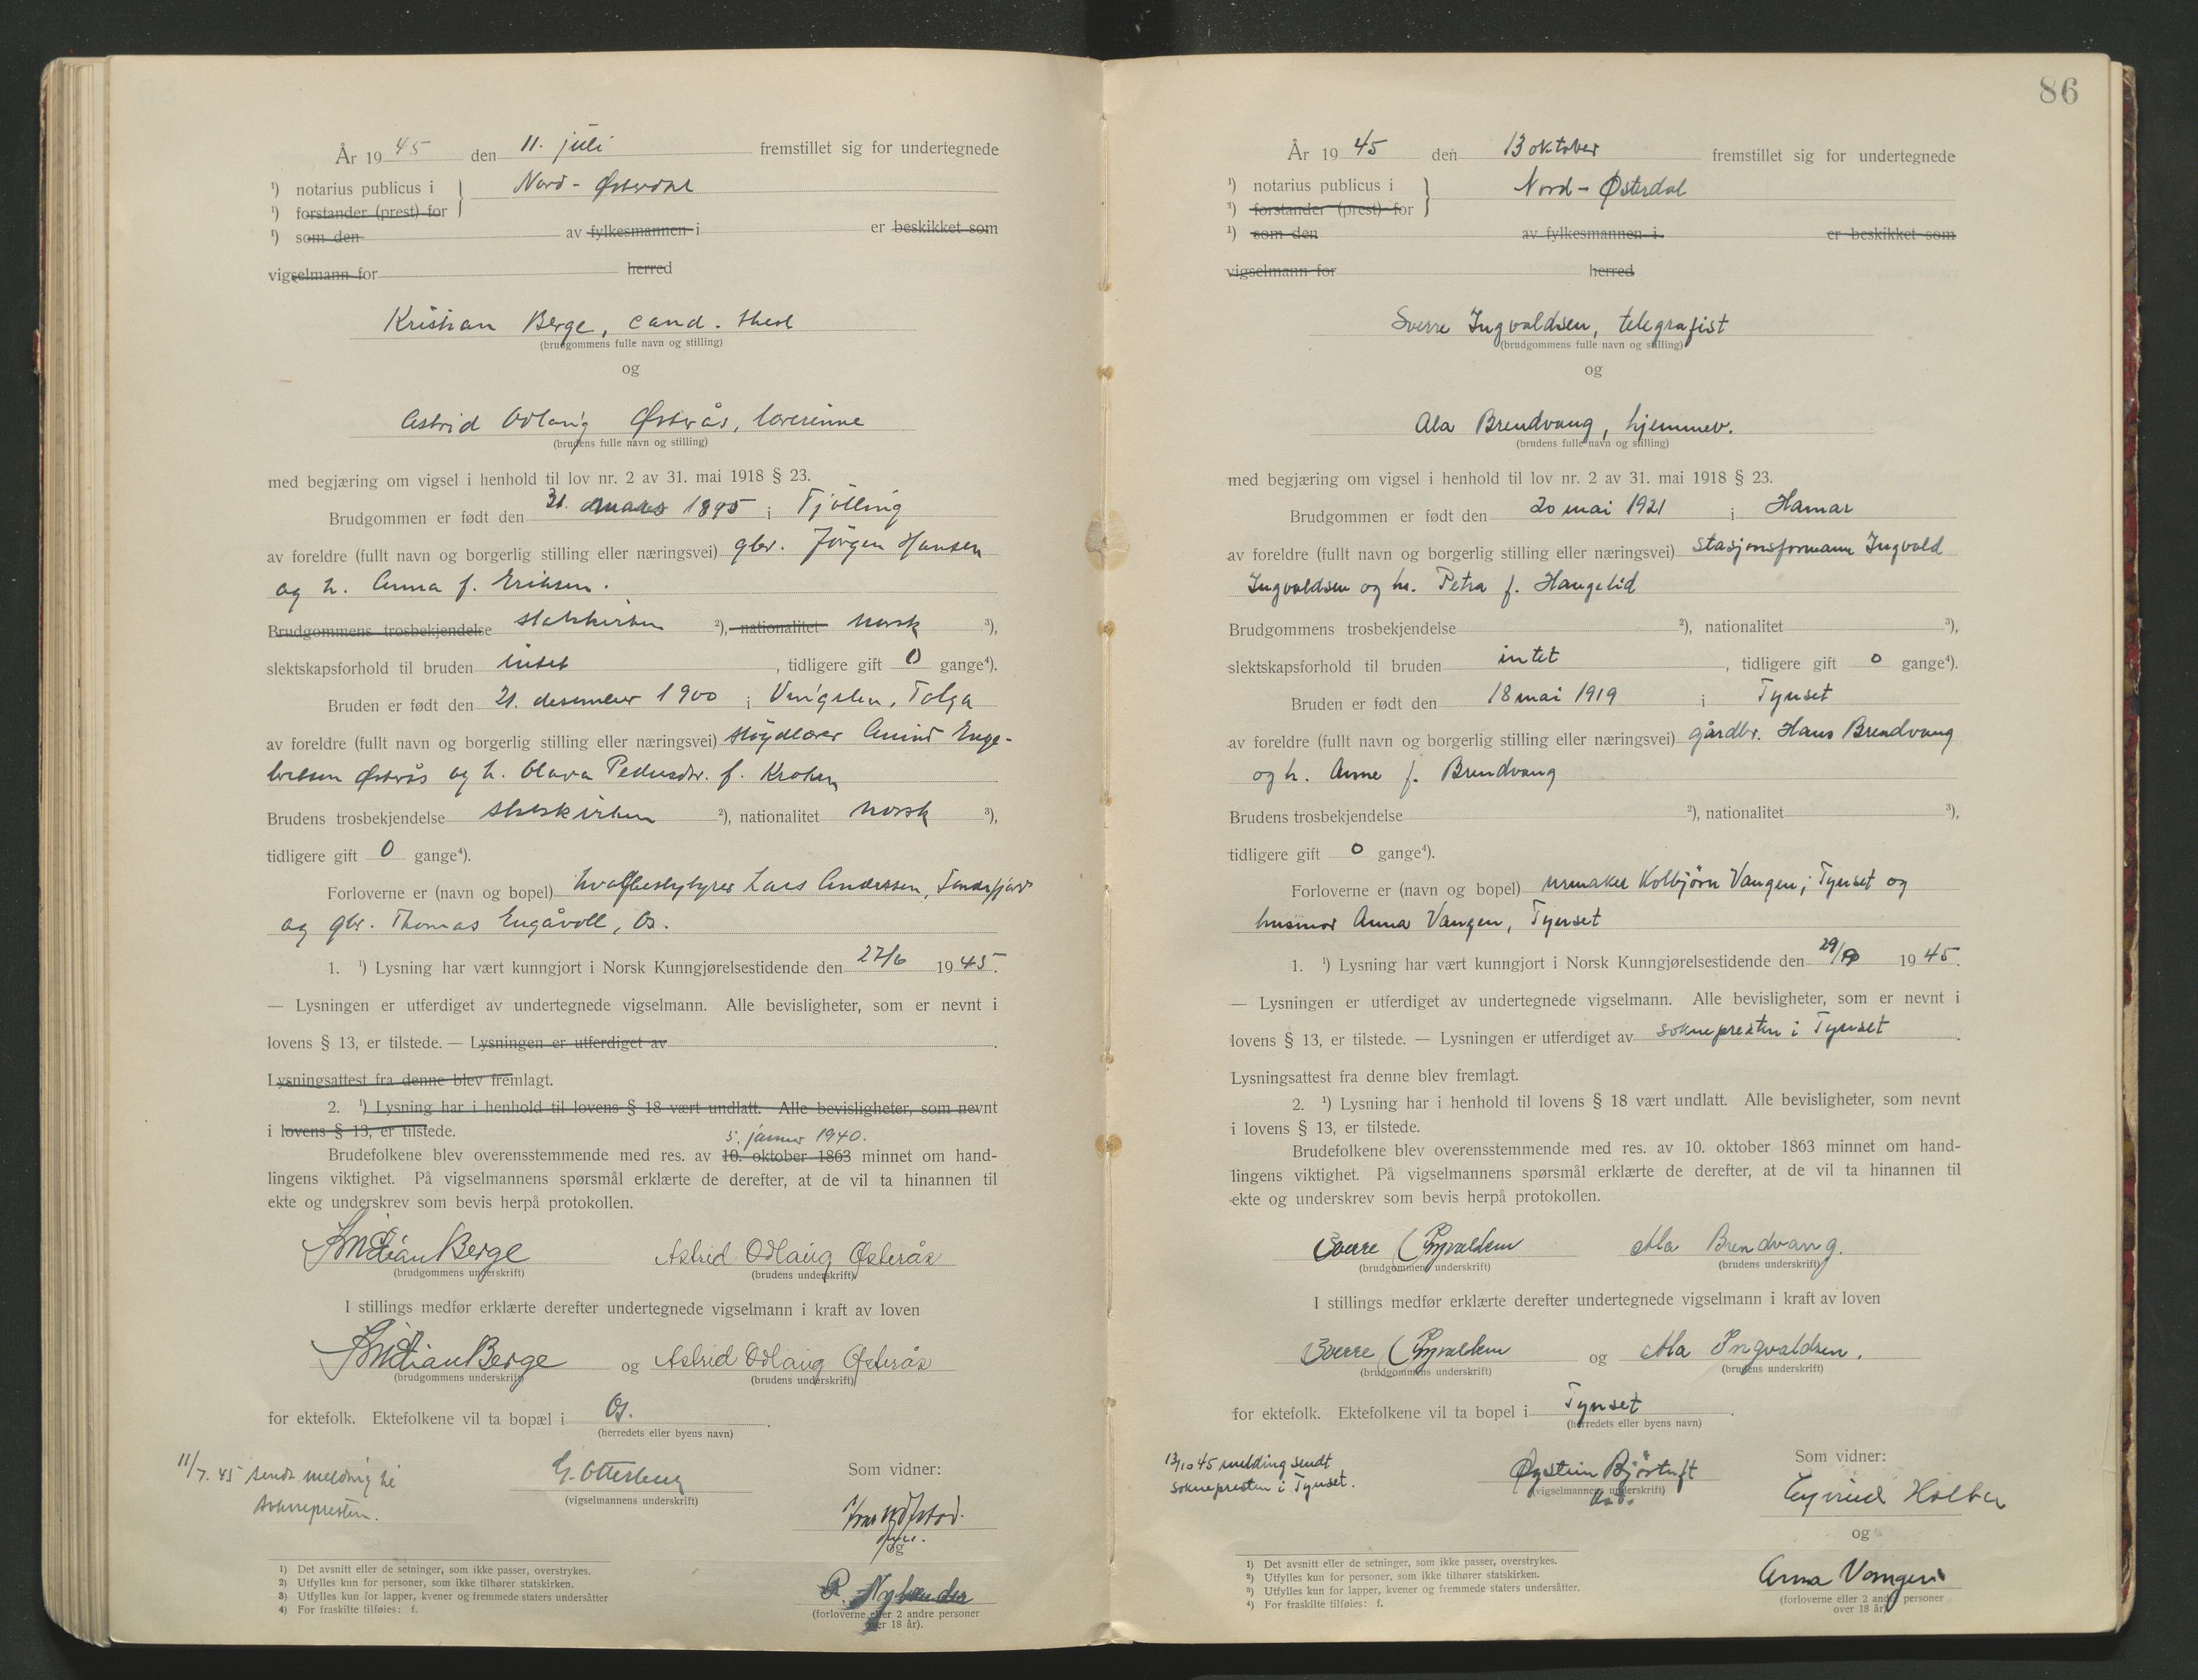 År 1945 den 11. juli fremstillet sig for undertegnede
¹) notarius publicus i } Nord-Østerdal
¹) forstander (prest) for
¹) som den av fylkesmannen i er beskikket som
vigselmann for herred
Kristian Berge, cand. theol
(brudgommens fulle navn og stilling)
og
Astrid Odlaug Østerås, lærerinne
(brudens fulle navn og stilling)
med begjæring om vigsel i henhold til lov nr. 2 av 31. mai 1918 § 23.
Brudgommen er født den 31. mars 1895 i Tjölling
av foreldre (fullt navn og borgerlig stilling eller næringsvei) gbr. Jörgen Hansen
og h. Anna f. Eriksen.
Brudgommens trosbekjendelse statskirken ²), nationalitet norsk ³),
slektskapsforhold til bruden intet, tidligere gift 0 gange⁴).
Bruden er født den 21. desember 1900 i Vingelen, Tolga
av foreldre (fullt navn og borgerlig stilling eller næringsvei) sløydlærer Amund Enge-
bretsen Østerås og h. Olava Pedersdtr. f. Krohen
Brudens trosbekjendelse statskirken ²), nationalitet norsk ³),
tidligere gift 0 gange⁴).
Forloverne er (navn og bopel) hvalbestyrer Lars Andersen, Sandefjord
og gbr. Thomas Engåvoll, Os.
1. ¹) Lysning har vært kunngjort i Norsk Kunngjørelsestidende den 27/6 1945.
— Lysningen er utferdiget av undertegnede vigselmann. Alle bevisligheter, som er nevnt i
lovens § 13, er tilstede. — Lysningen er utferdiget av .
Lysningsattest fra denne blev fremlagt.
2. ¹) Lysning har i henhold til lovens § 18 vært undlatt. Alle bevisligheter, som nevnt
i lovens § 13, er tilstede.
5. januar 1940.
Brudefolkene blev overensstemmende med res. av 10. oktober 1863 minnet om hand-
lingens viktighet. På vigselmannens spørsmål erklærte de derefter, at de vil ta hinannen til
ekte og underskrev som bevis herpå protokollen.
Kristian Berge Astrid Odlaug Østerås
(brudgommens underskrift) (brudens underskrift)
I stillings medfør erklærte derefter undertegnede vigselmann i kraft av loven
Kristian Berge og Astrid Odlaug Østerås
(brudgommens underskrift) (brudens underskrift)
for ektefolk. Ektefolkene vil ta bopæl i Os.
(herredets eller byens navn)
11/7.45 sendt melding til
soknepresten.
G. Otterberg
(vigselmannens underskrift)
Som vidner:
og
P. Nylænder
(forloverne eller 2 andre personer
over 18 år).
1) Det avsnitt eller de setninger, som ikke passer, overstrykes.
2) Utfylles kun for personer, som ikke tilhører statskirken.
3) Utfylles kun for lapper, kvener og fremmede staters undersåtter
4) For fraskilte tilføies: f.
86
År 1945 den 13 oktober fremstillet sig for undertegnede
¹) notarius publicus i } Nord-Østerdal
¹) forstander (prest) for
¹) som den av fylkesmannen i er beskikket som
vigselmann for herred
Sverre Ingvaldsen, telegrafist
(brudgommens fulle navn og stilling)
og
Ala Brendvang, hjemmev.
(brudens fulle navn og stilling)
med begjæring om vigsel i henhold til lov nr. 2 av 31. mai 1918 § 23.
Brudgommen er født den 20 mai 1921 i Hamar
av foreldre (fullt navn og borgerlig stilling eller næringsvei) stasjonsformann Ingvald
Ingvaldsen og h. Petra f. Haugelid
Brudgommens trosbekjendelse ²), nationalitet ³),
slektskapsforhold til bruden intet, tidligere gift 0 gange⁴).
Bruden er født den 18 mai 1919 i Tynset
av foreldre (fullt navn og borgerlig stilling eller næringsvei) gårdbr. Hans Brendvang
og h. Anne f. Brendvang
Brudens trosbekjendelse ²), nationalitet ³),
tidligere gift 0 gange⁴).
Forloverne er (navn og bopel) urmaker Kolbjørn Vangen, Tynset og
husmor Anna Vangen, Tynset
1. ¹) Lysning har vært kunngjort i Norsk Kunngjørelsestidende den 29/9 1945.
— Lysningen er utferdiget av undertegnede vigselmann. Alle bevisligheter, som er nevnt i
lovens § 13, er tilstede. — Lysningen er utferdiget av soknepresten i Tynset.
Lysningsattest fra denne blev fremlagt.
2. ¹) Lysning har i henhold til lovens § 18 vært undlatt. Alle bevisligheter, som nevnt
i lovens § 13, er tilstede.
Brudefolkene blev overensstemmende med res. av 10. oktober 1863 minnet om hand-
lingens viktighet. På vigselmannens spørsmål erklærte de derefter, at de vil ta hinannen til
ekte og underskrev som bevis herpå protokollen.
Sverre Ingvaldsen Ala Brendvang.
(brudgommens underskrift) (brudens underskrift)
I stillings medfør erklærte derefter undertegnede vigselmann i kraft av loven
Sverre Ingvaldsen og Ala Ingvaldsen.
(brudgommens underskrift) (brudens underskrift)
for ektefolk. Ektefolkene vil ta bopel i Tynset.
(herredets eller byens navn)
13/10 45 melding sendt
soknepresten i Tynset.
Øystein Bjørtuft
(vigselmannens underskrift)
Som vidner:
Eyvind Holten
og
Anna Vangen
(forloverne eller 2 andre personer
over 18 år).
¹) Det avsnitt eller de setninger, som ikke passer, overstrykes.
²) Utfylles kun for personer, som ikke tilhører statskirken.
³) Utfylles kun for lapper, kvener og fremmede staters undersåtter.
⁴) For fraskilte tilføies: f.